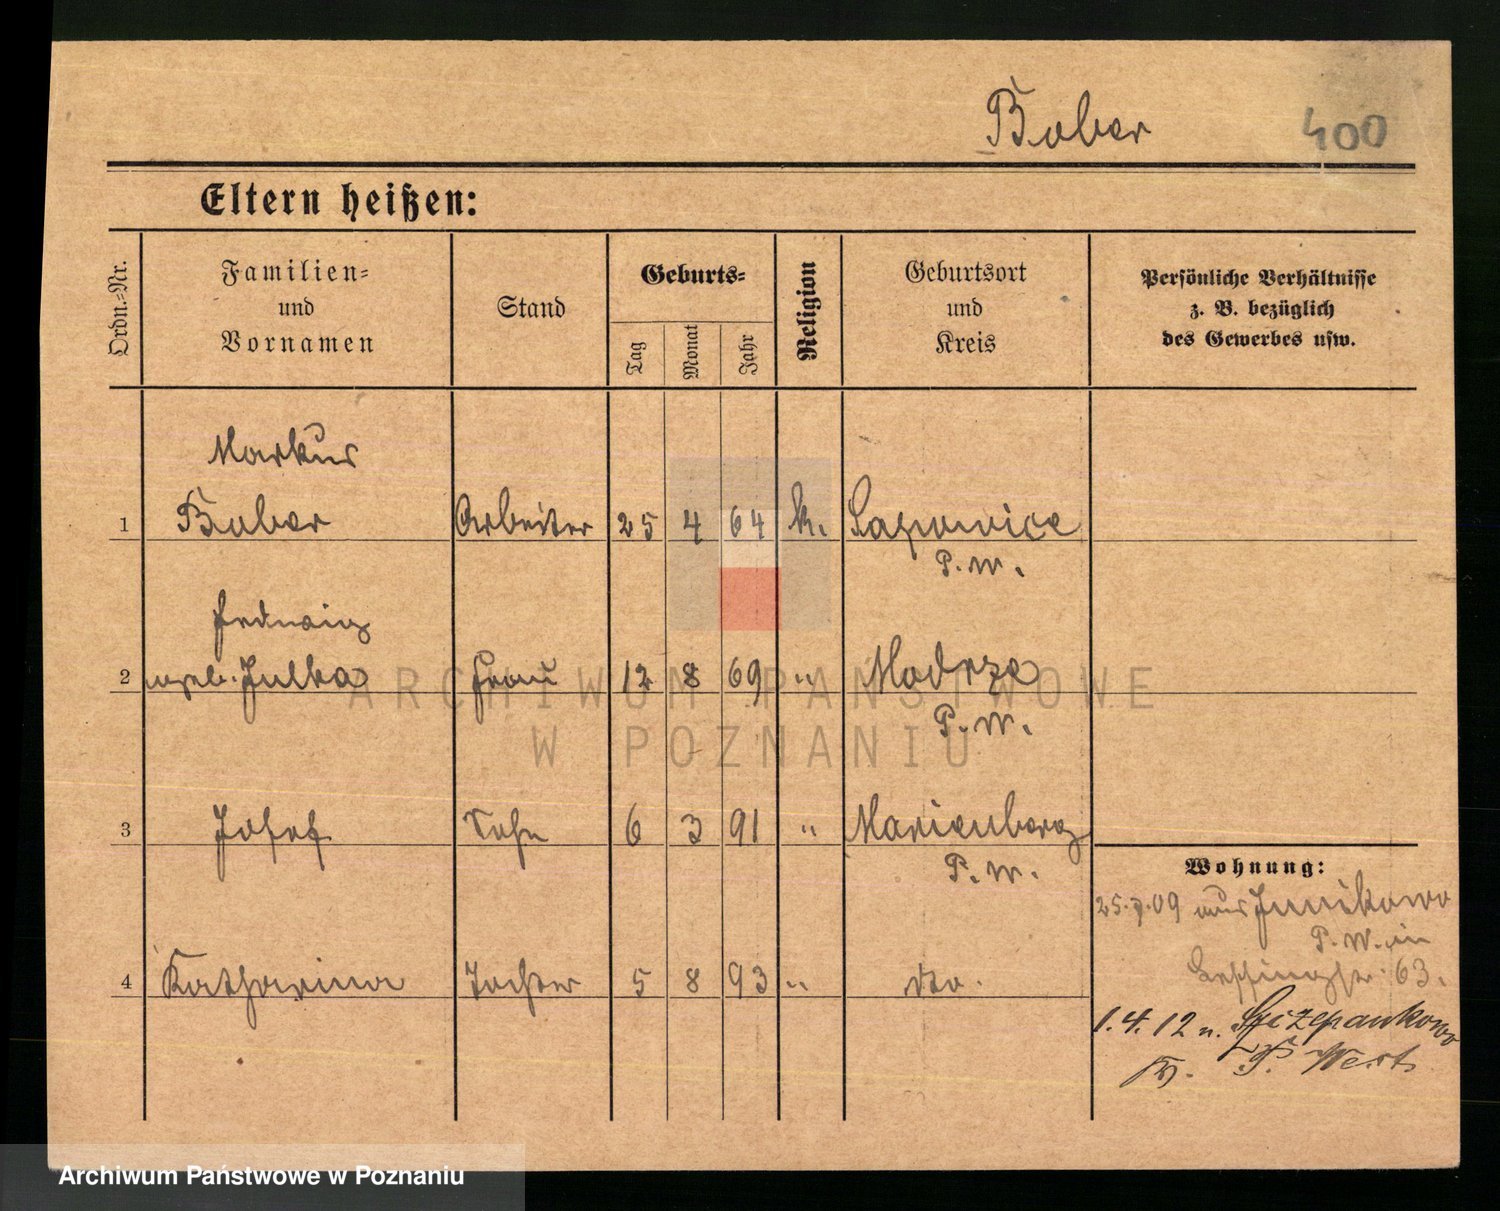 Bober 400
Eltern heißen:
Ordn.-Nr.
Familien-
und
Vornamen
Stand
Geburts-
Tag
Monat
Jahr
Religion
Geburtsort
und
Kreis
Persönliche Verhältnisse
z. B. bezüglich
des Gewerbes usw.
Markus
1 Bober Arbeiter 25 4 64 k. Sapowice
P. W.
Hedwig
2 geb. Julka Frau 12 8 69 " Modrze
P. W.
3 Josef Sohn 6 3 91 " Marienberg
P. W.
Wohnung:
25. 09 aus Junikowo
P. W. in
4 Katharina Tochter 5 8 93 " dto.
Lessingstr. 63.
1. 4. 12 n. Szczepankowo
Kr. P. West
ARCHIWUM PAŃSTWOWE
W POZNANIU
Archiwum Państwowe w Poznaniu